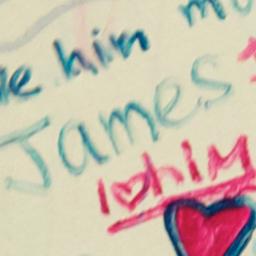 him
James
I♥hIM